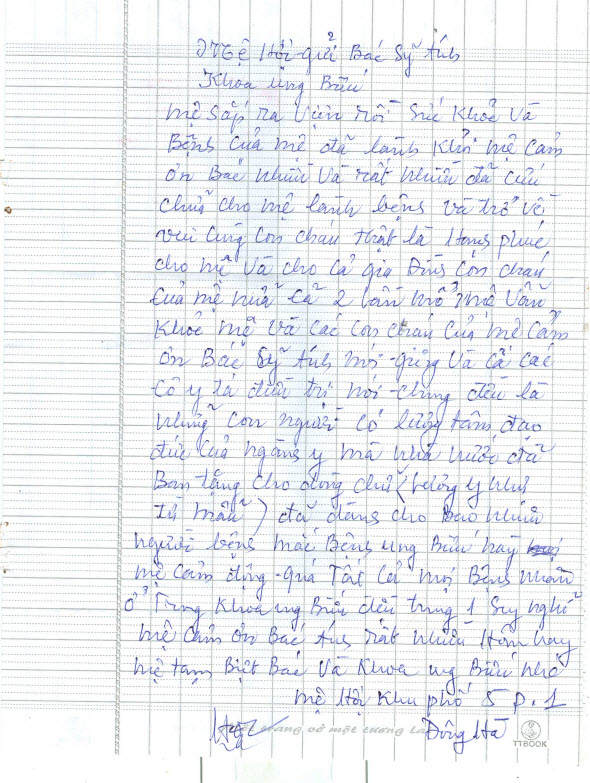 Mệ Hội gửi Bác Sỹ Ánh
Khoa ung Bứu
mệ sắp ra viện rồi Sức Khoẻ Và
Bệnh Của mệ đã lành Khỏi mệ Cảm
ơn Bác nhiều Và rất nhiều đã Cứu
chữa cho mệ lành bệnh và trở về
vui Cùng Con cháu thật là Hạnh phúc
cho mệ Và cho Cả gia Đình Con cháu
Của mệ nữa Cả 2 lần mổ mệ Vẫn
Khoẻ mệ và Các Con cháu Của mệ Cảm
ơn Bác Sỹ Ánh nói riêng Và Cả Các
Cô y tá điều trị nói chung đều là
những Con người Có lương tâm đạo
đức Của ngành y mà nhà nước đã
Ban tặng cho dòng chữ (lương y như
Từ mẫu) đã dành cho Bao nhiêu
người bệnh mắc Bệnh ung Bứu này
mệ Cảm động quá Tất Cả mọi Bệnh nhân
ở Trong Khoa ung Bứu đều trung 1 Suy nghĩ
mệ Cảm ơn Bác Ánh rất nhiều Hôm nay
mệ tạm Biệt Bác Và Khoa ung Bứu nhé
mệ Hội Khu phố 5 p. 1
Đông Hà
trang vở một tương lai
TTBOOK